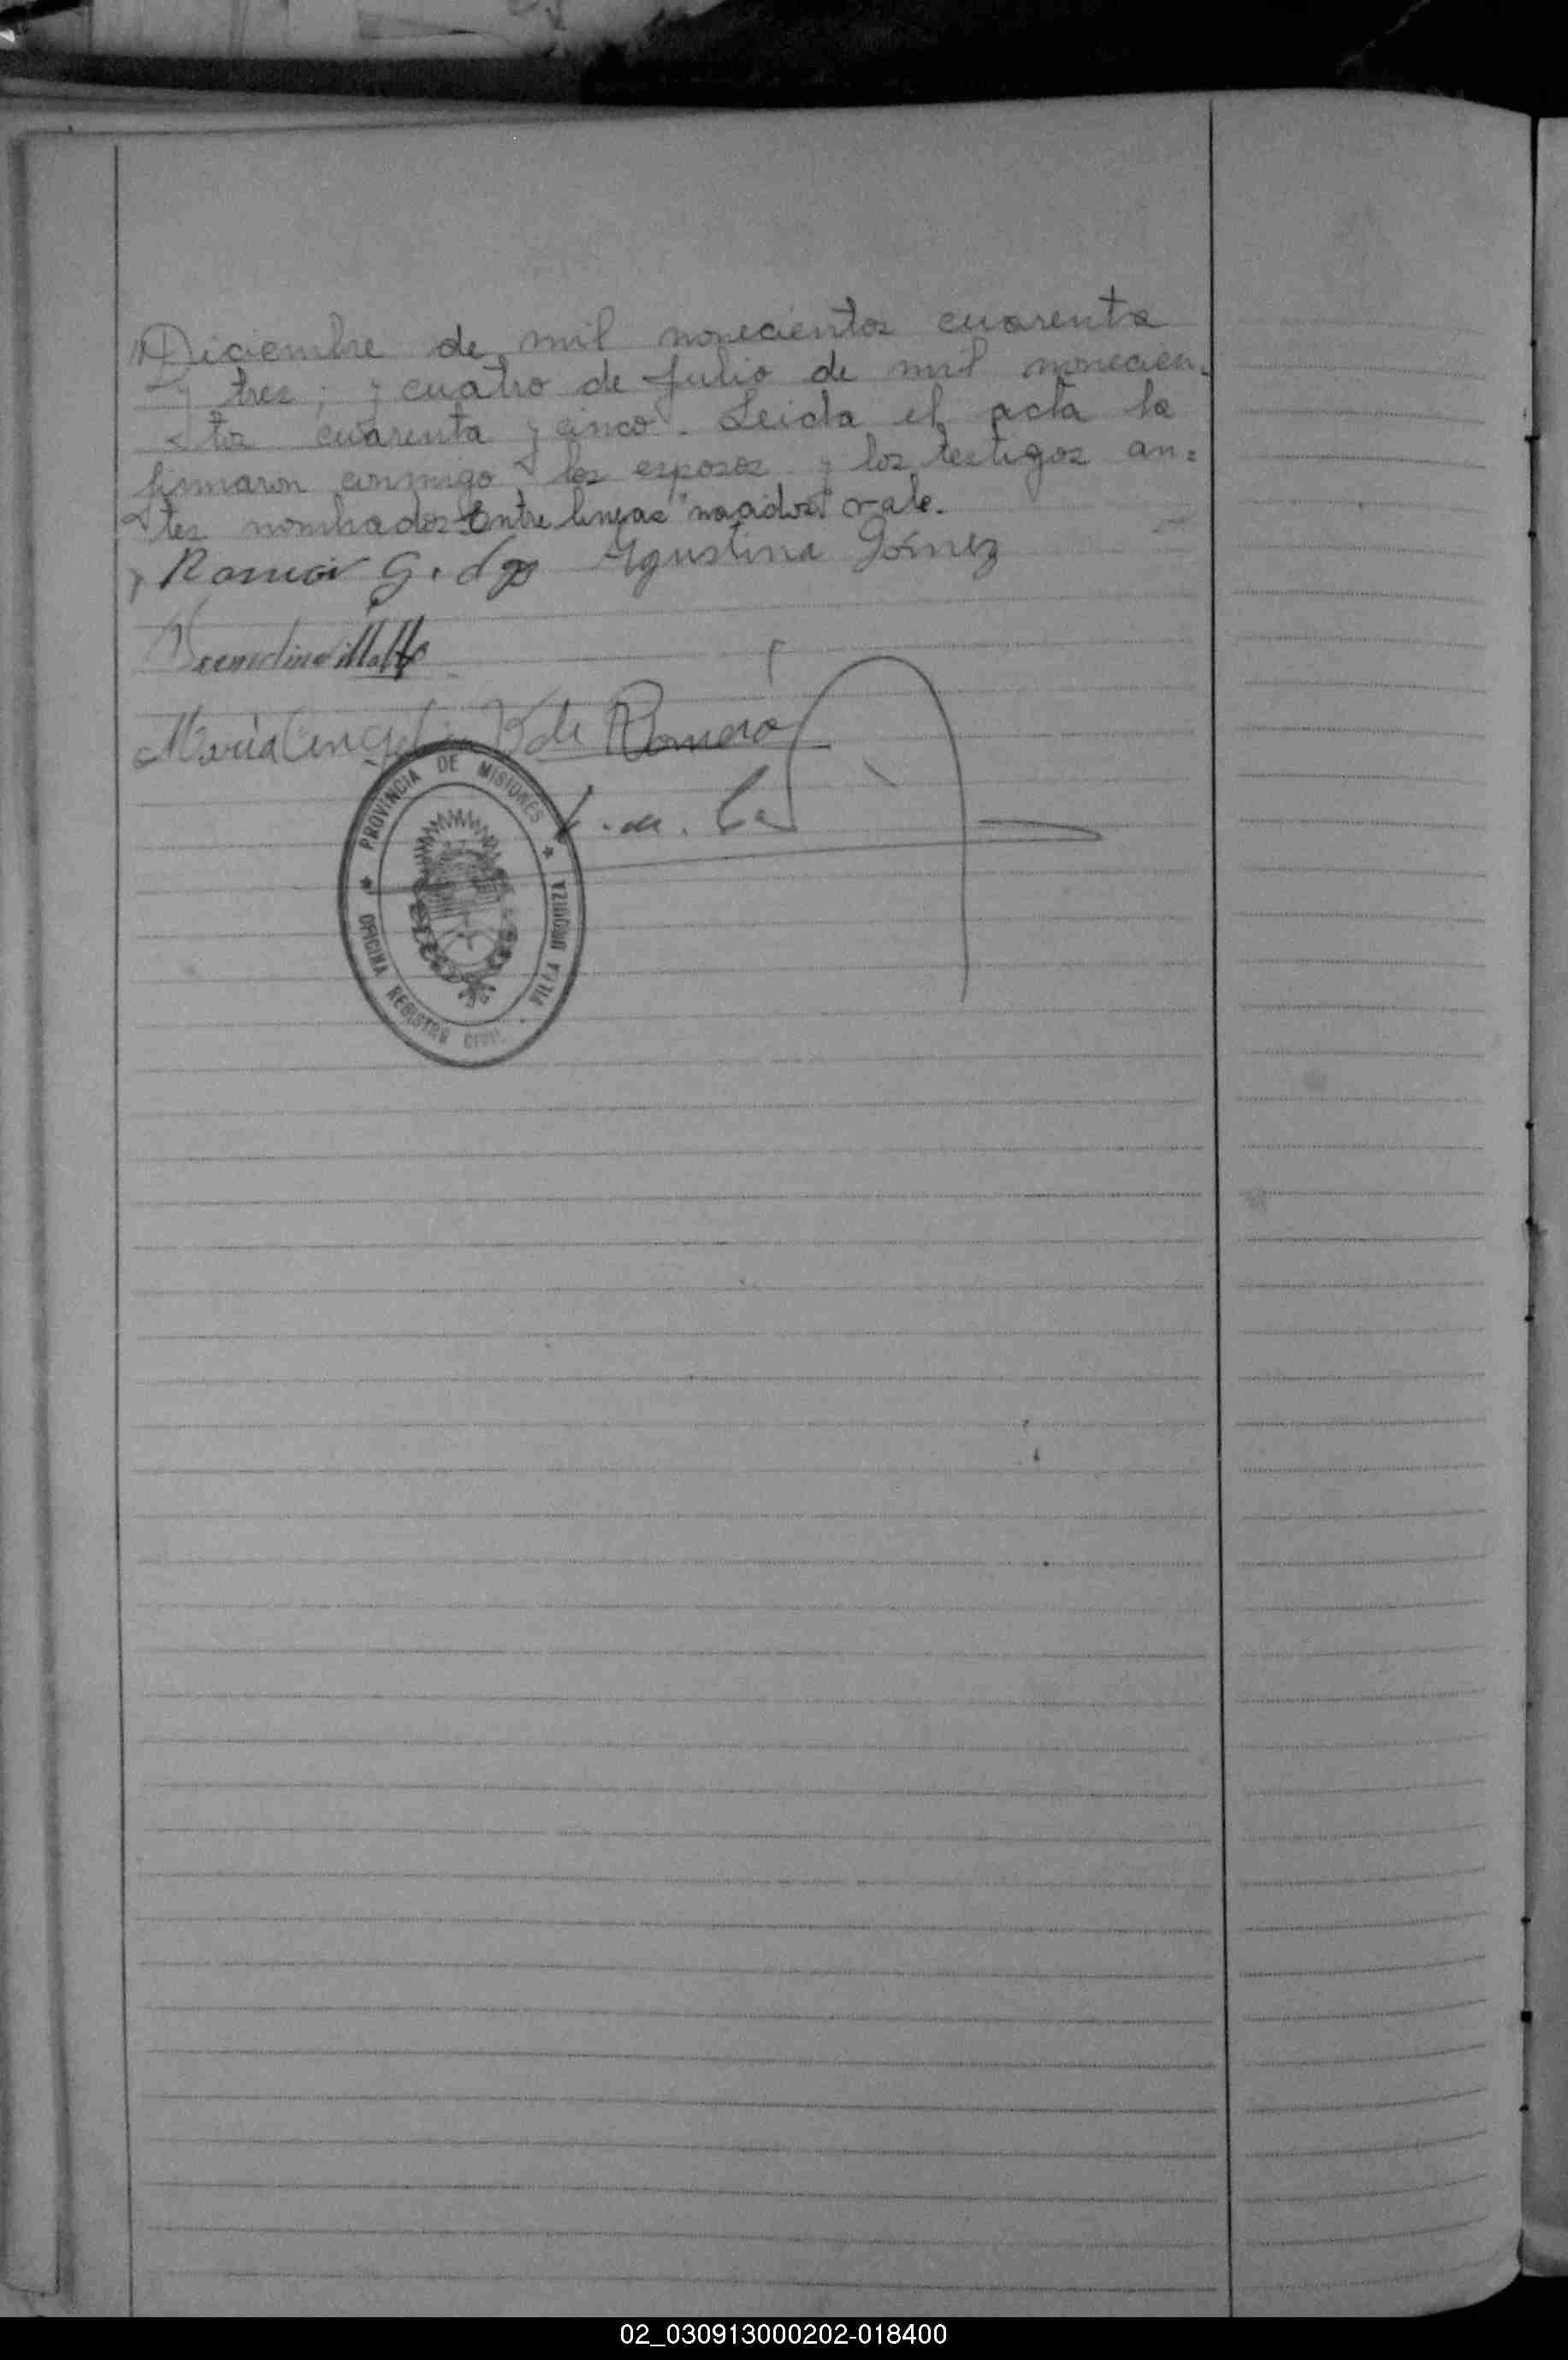 Diciembre de mil novecientos cuarenta
y tres; y cuatro de Julio de mil novecien-
tos cuarenta y cinco. Leida el acta la
firmaron conmigo los esposos y los testigos an=
tes nombrados Entre lineas "nacidos" vale.
Ramón G. Agustina Gómez
María de Romero
PROVINCIA DE MISIONES
OFICINA REGISTRO CIVIL VILLA URQUIZA
02_030913000202-018400